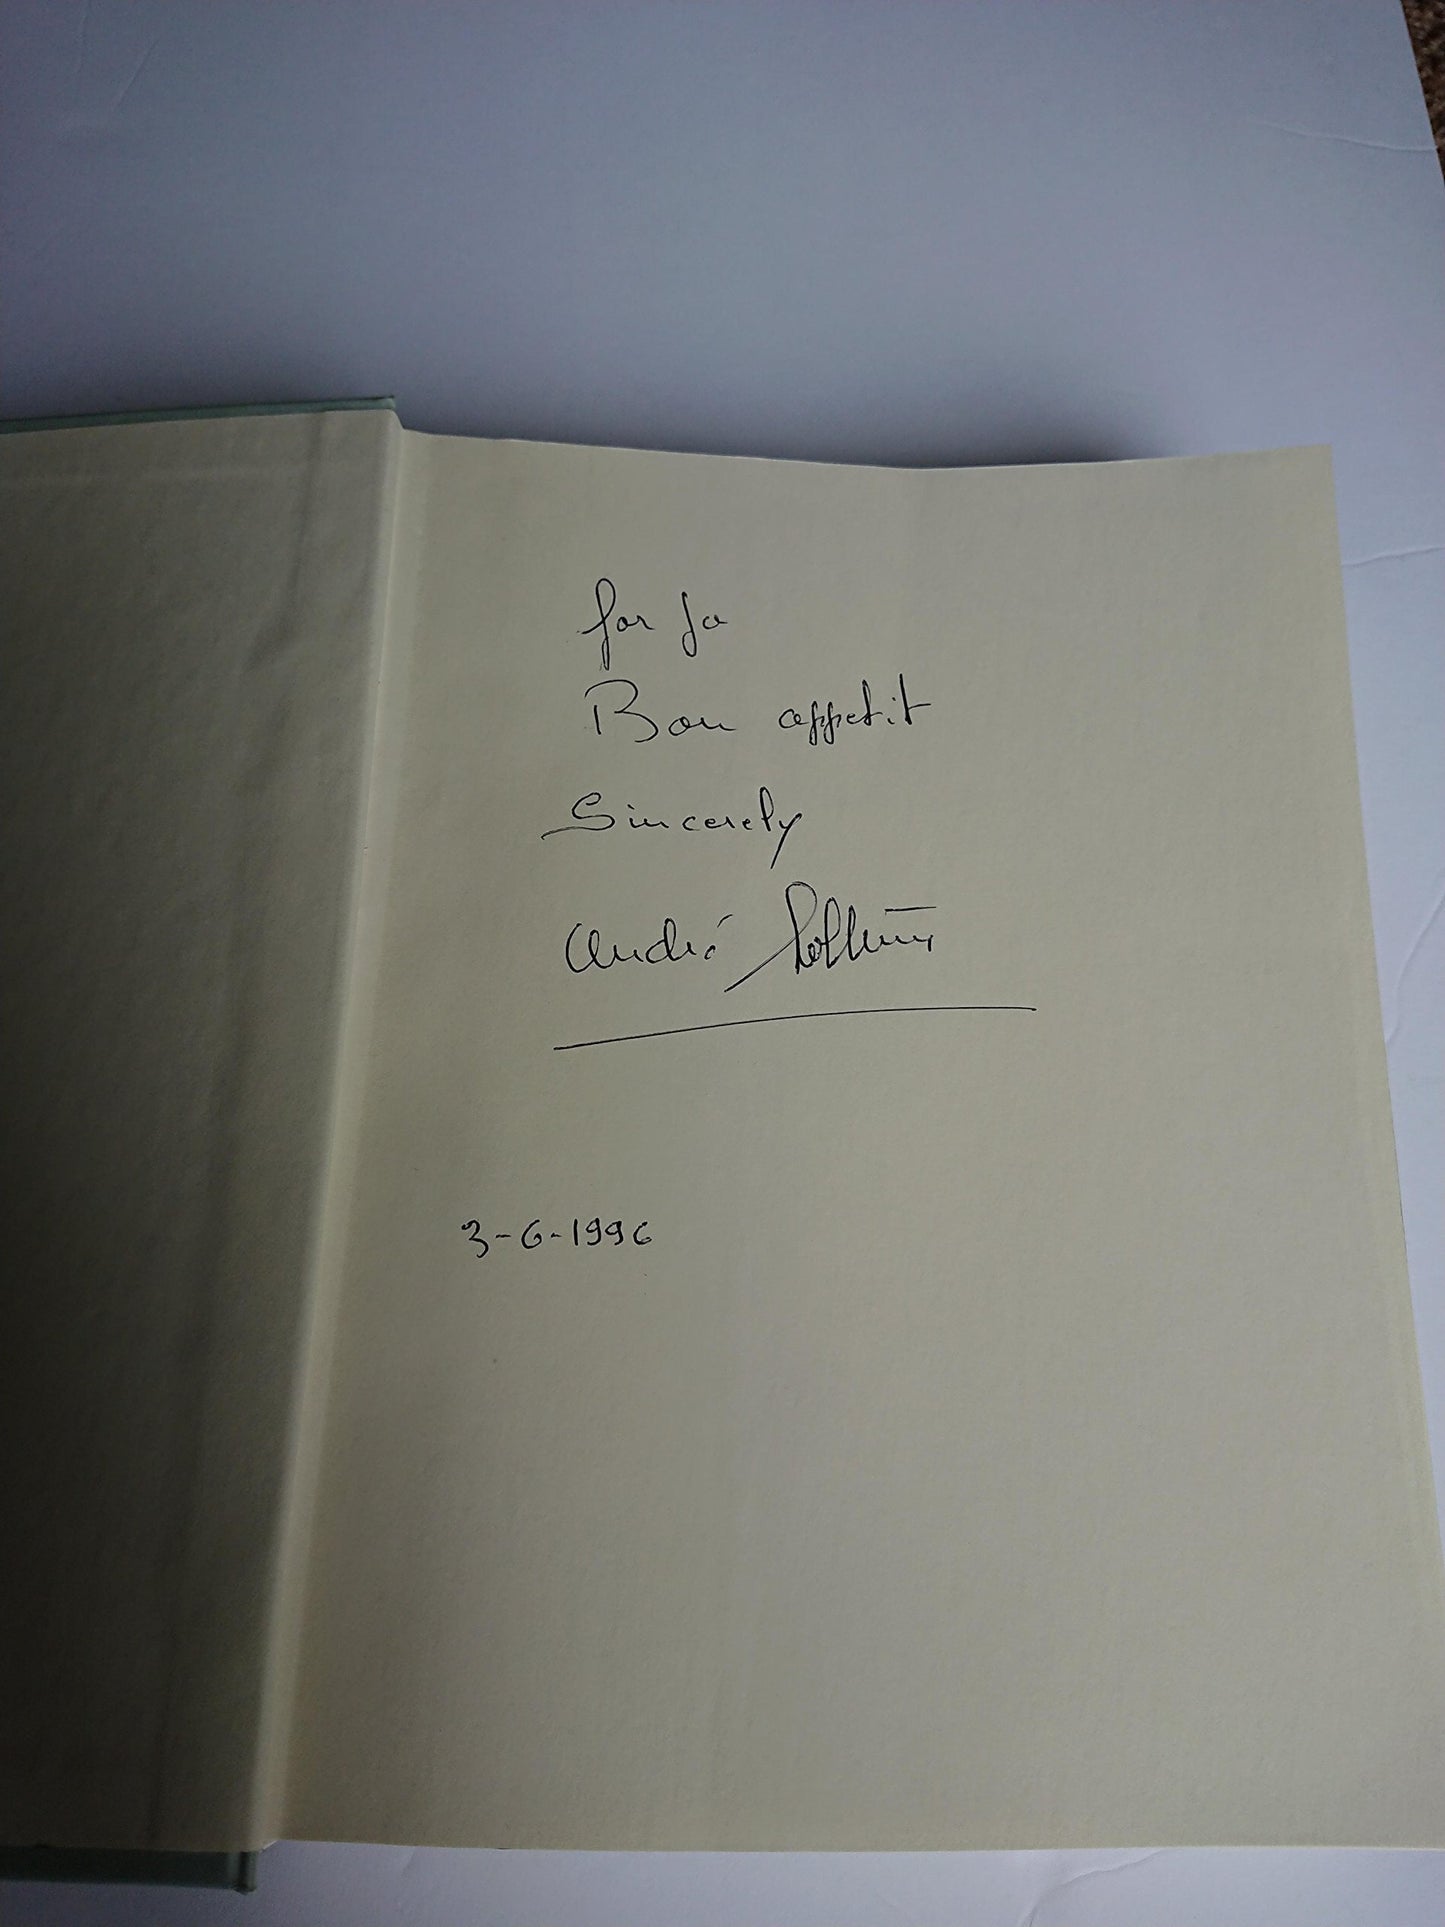 for Jo
Bon appetit
Sincerely
André Soltner
3-6-1996